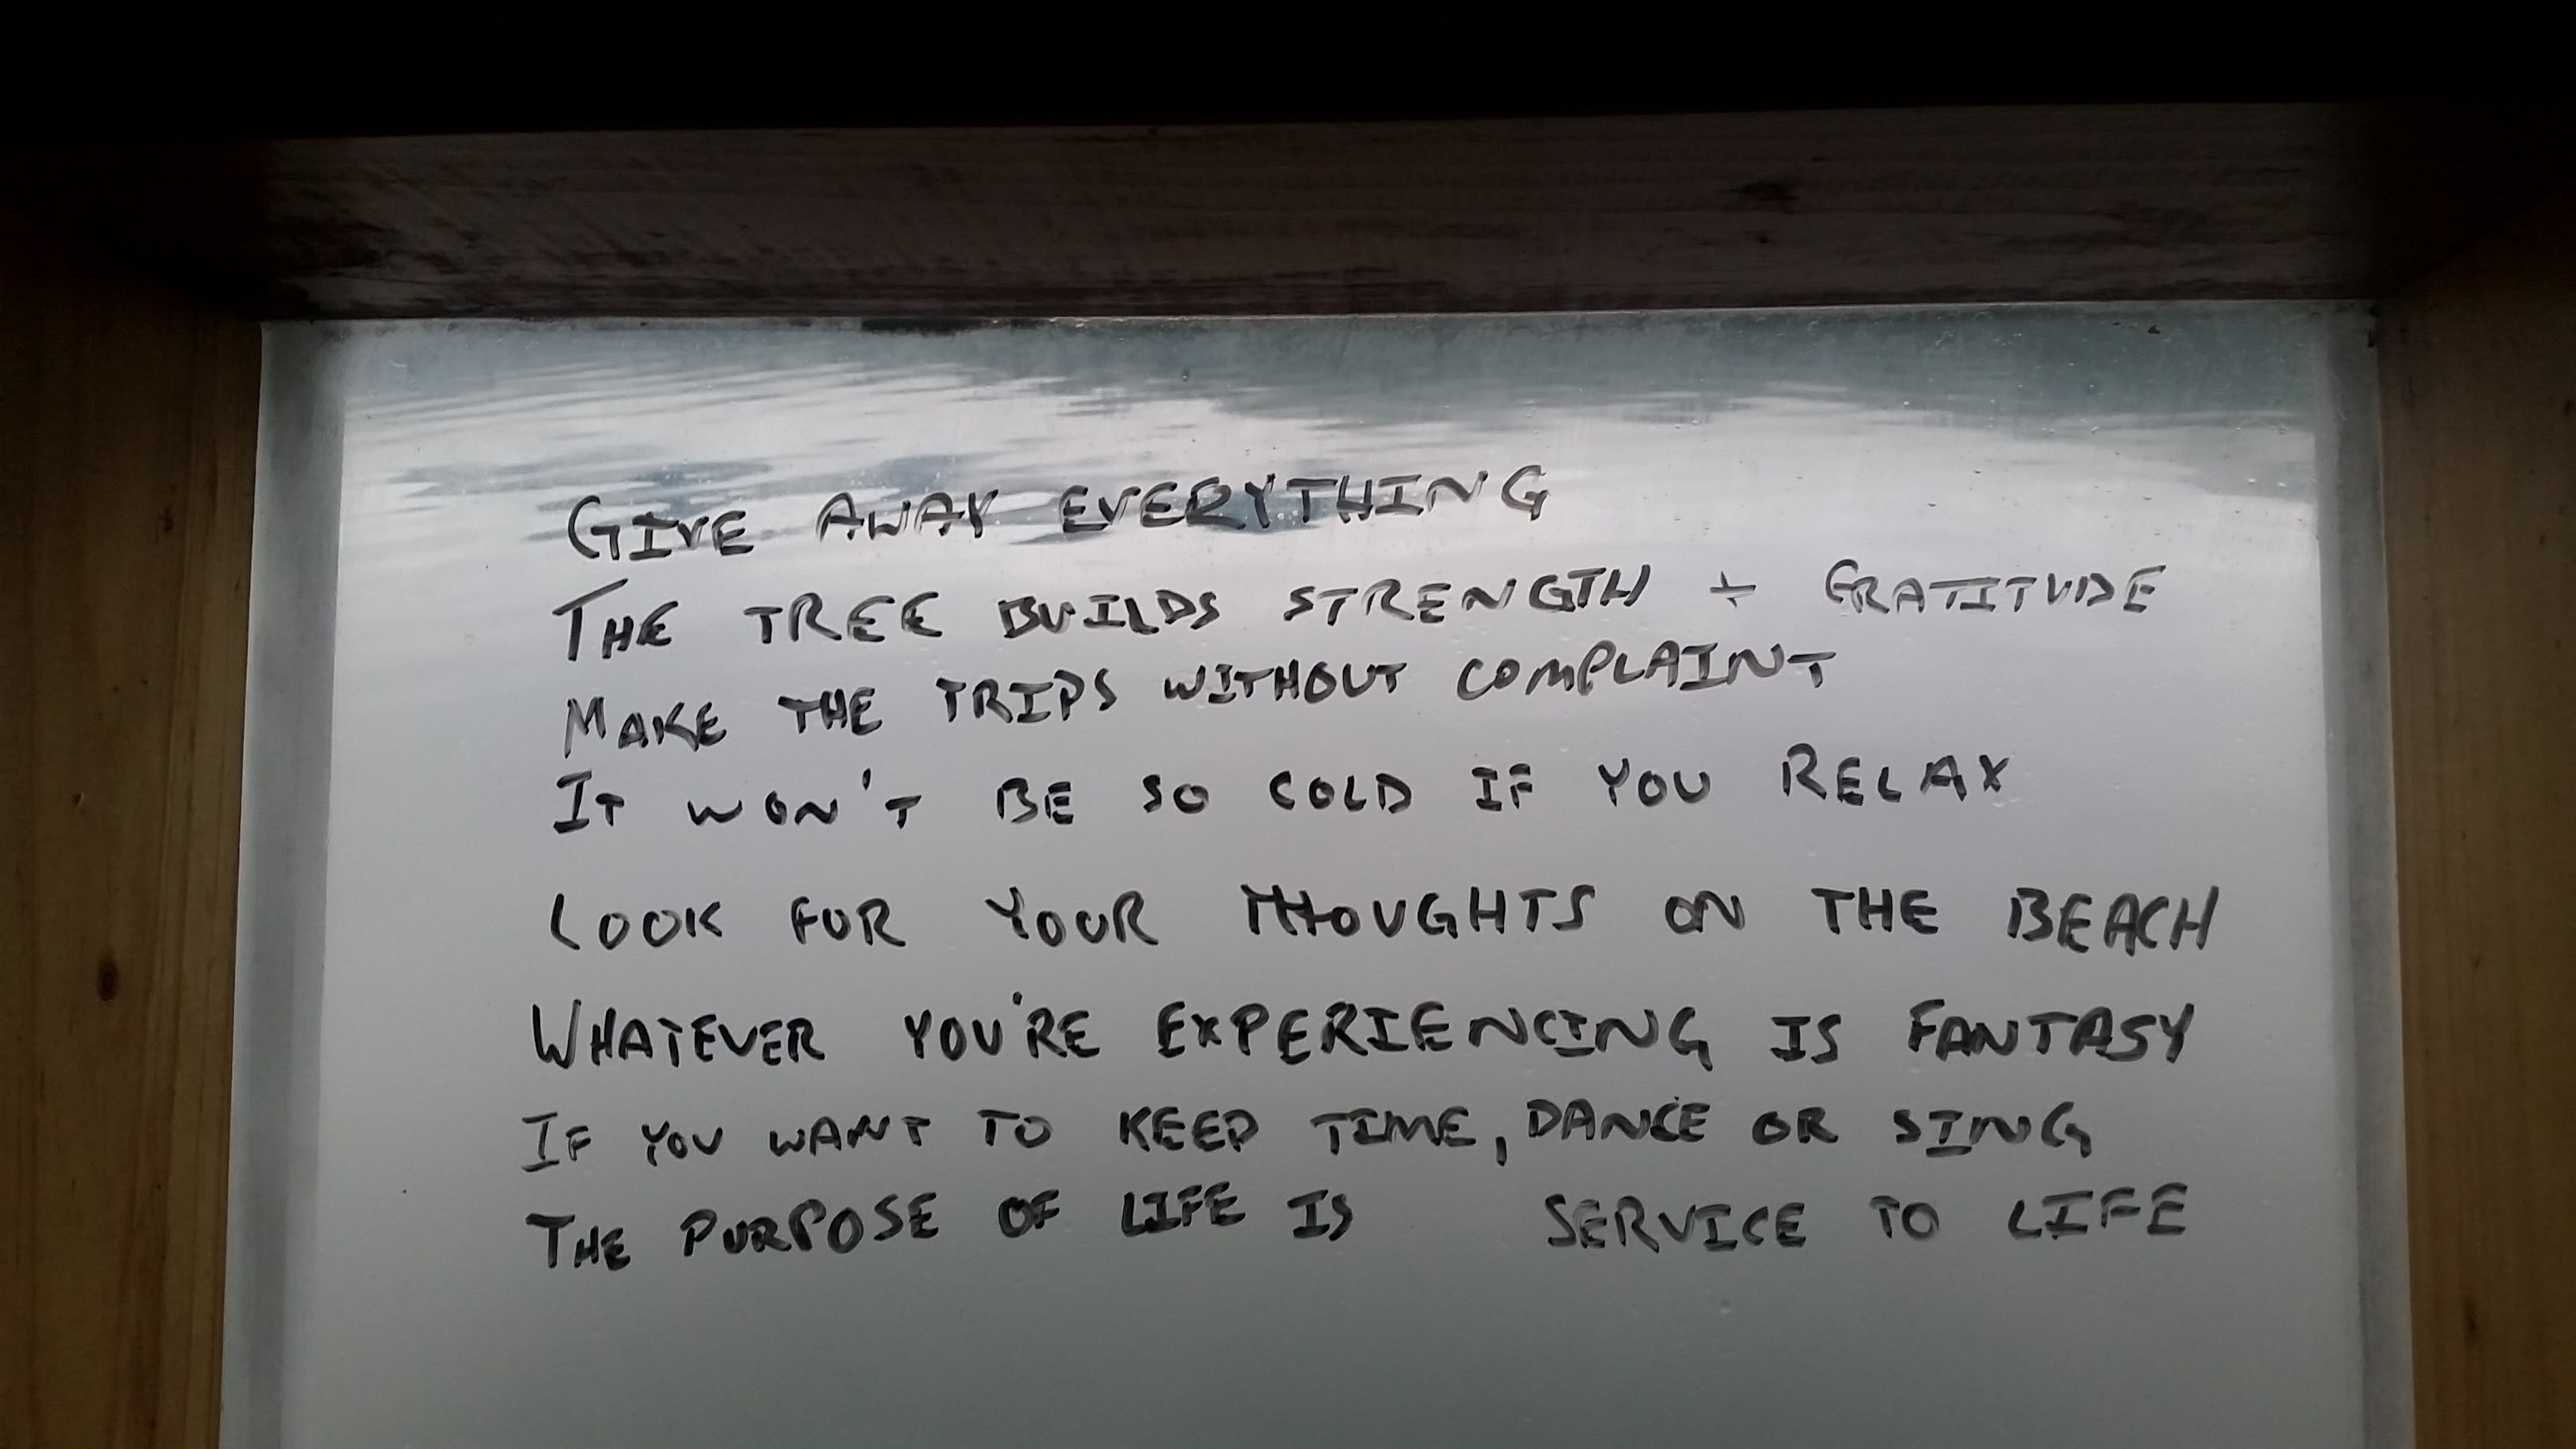 GIVE AWAY EVERYTHING
THE TREE BUILDS STRENGTH + GRATITUDE
MAKE THE TRIPS WITHOUT COMPLAINT
IT WON'T BE SO COLD IF YOU RELAX
LOOK FOR YOUR THOUGHTS ON THE BEACH
WHATEVER YOU'RE EXPERIENCING IS FANTASY
IF YOU WANT TO KEEP TIME, DANCE OR SING
THE PURPOSE OF LIFE IS SERVICE TO LIFE